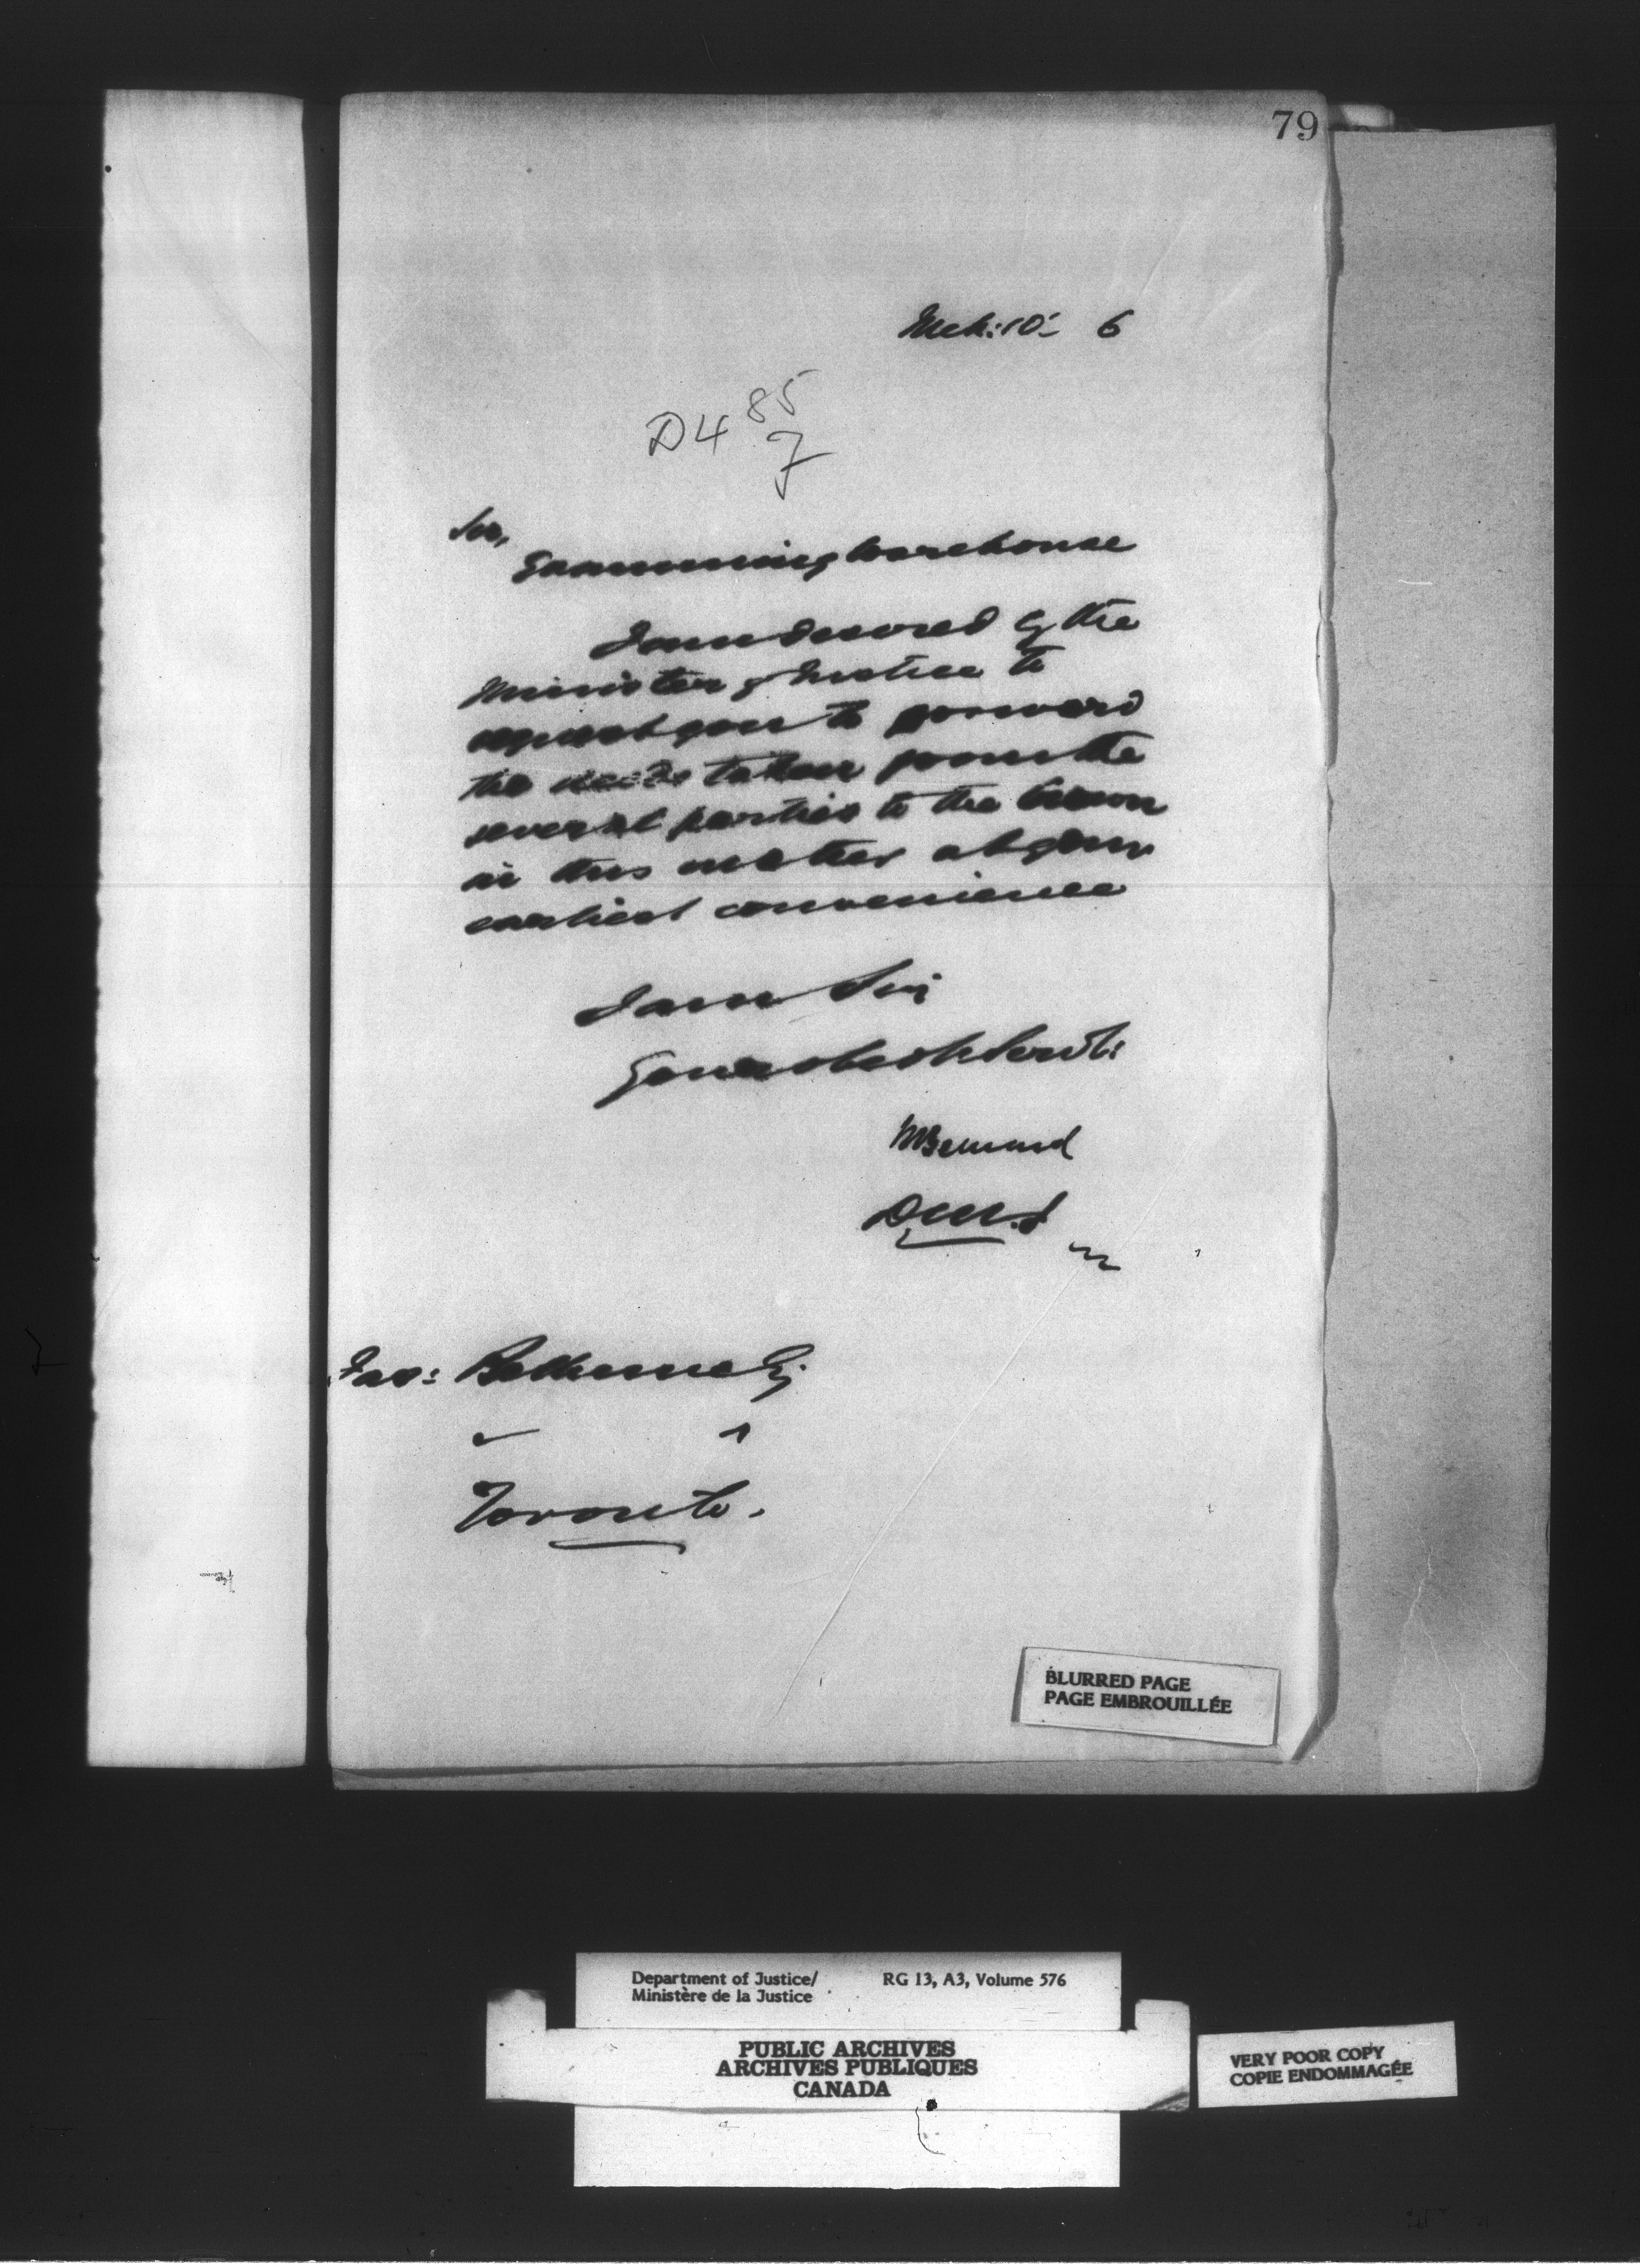 79
Mch: 10: 6
D4 85
7
Sir,
Examining Warehouse
I am desired by the
Minister of Justice to
request you to forward
the deeds taken from the
several parties to the Crown
in this matter at your
earliest convenience
I am Sir
Your obedt Servt:
HBernard
D.M.J
Jas: Bethune Esq
Toronto.
BLURRED PAGE
PAGE EMBROUILLÉE
Department of Justice/ RG 13, A3, Volume 576
Ministère de la Justice
PUBLIC ARCHIVES
ARCHIVES PUBLIQUES
CANADA
VERY POOR COPY
COPIE ENDOMMAGÉE